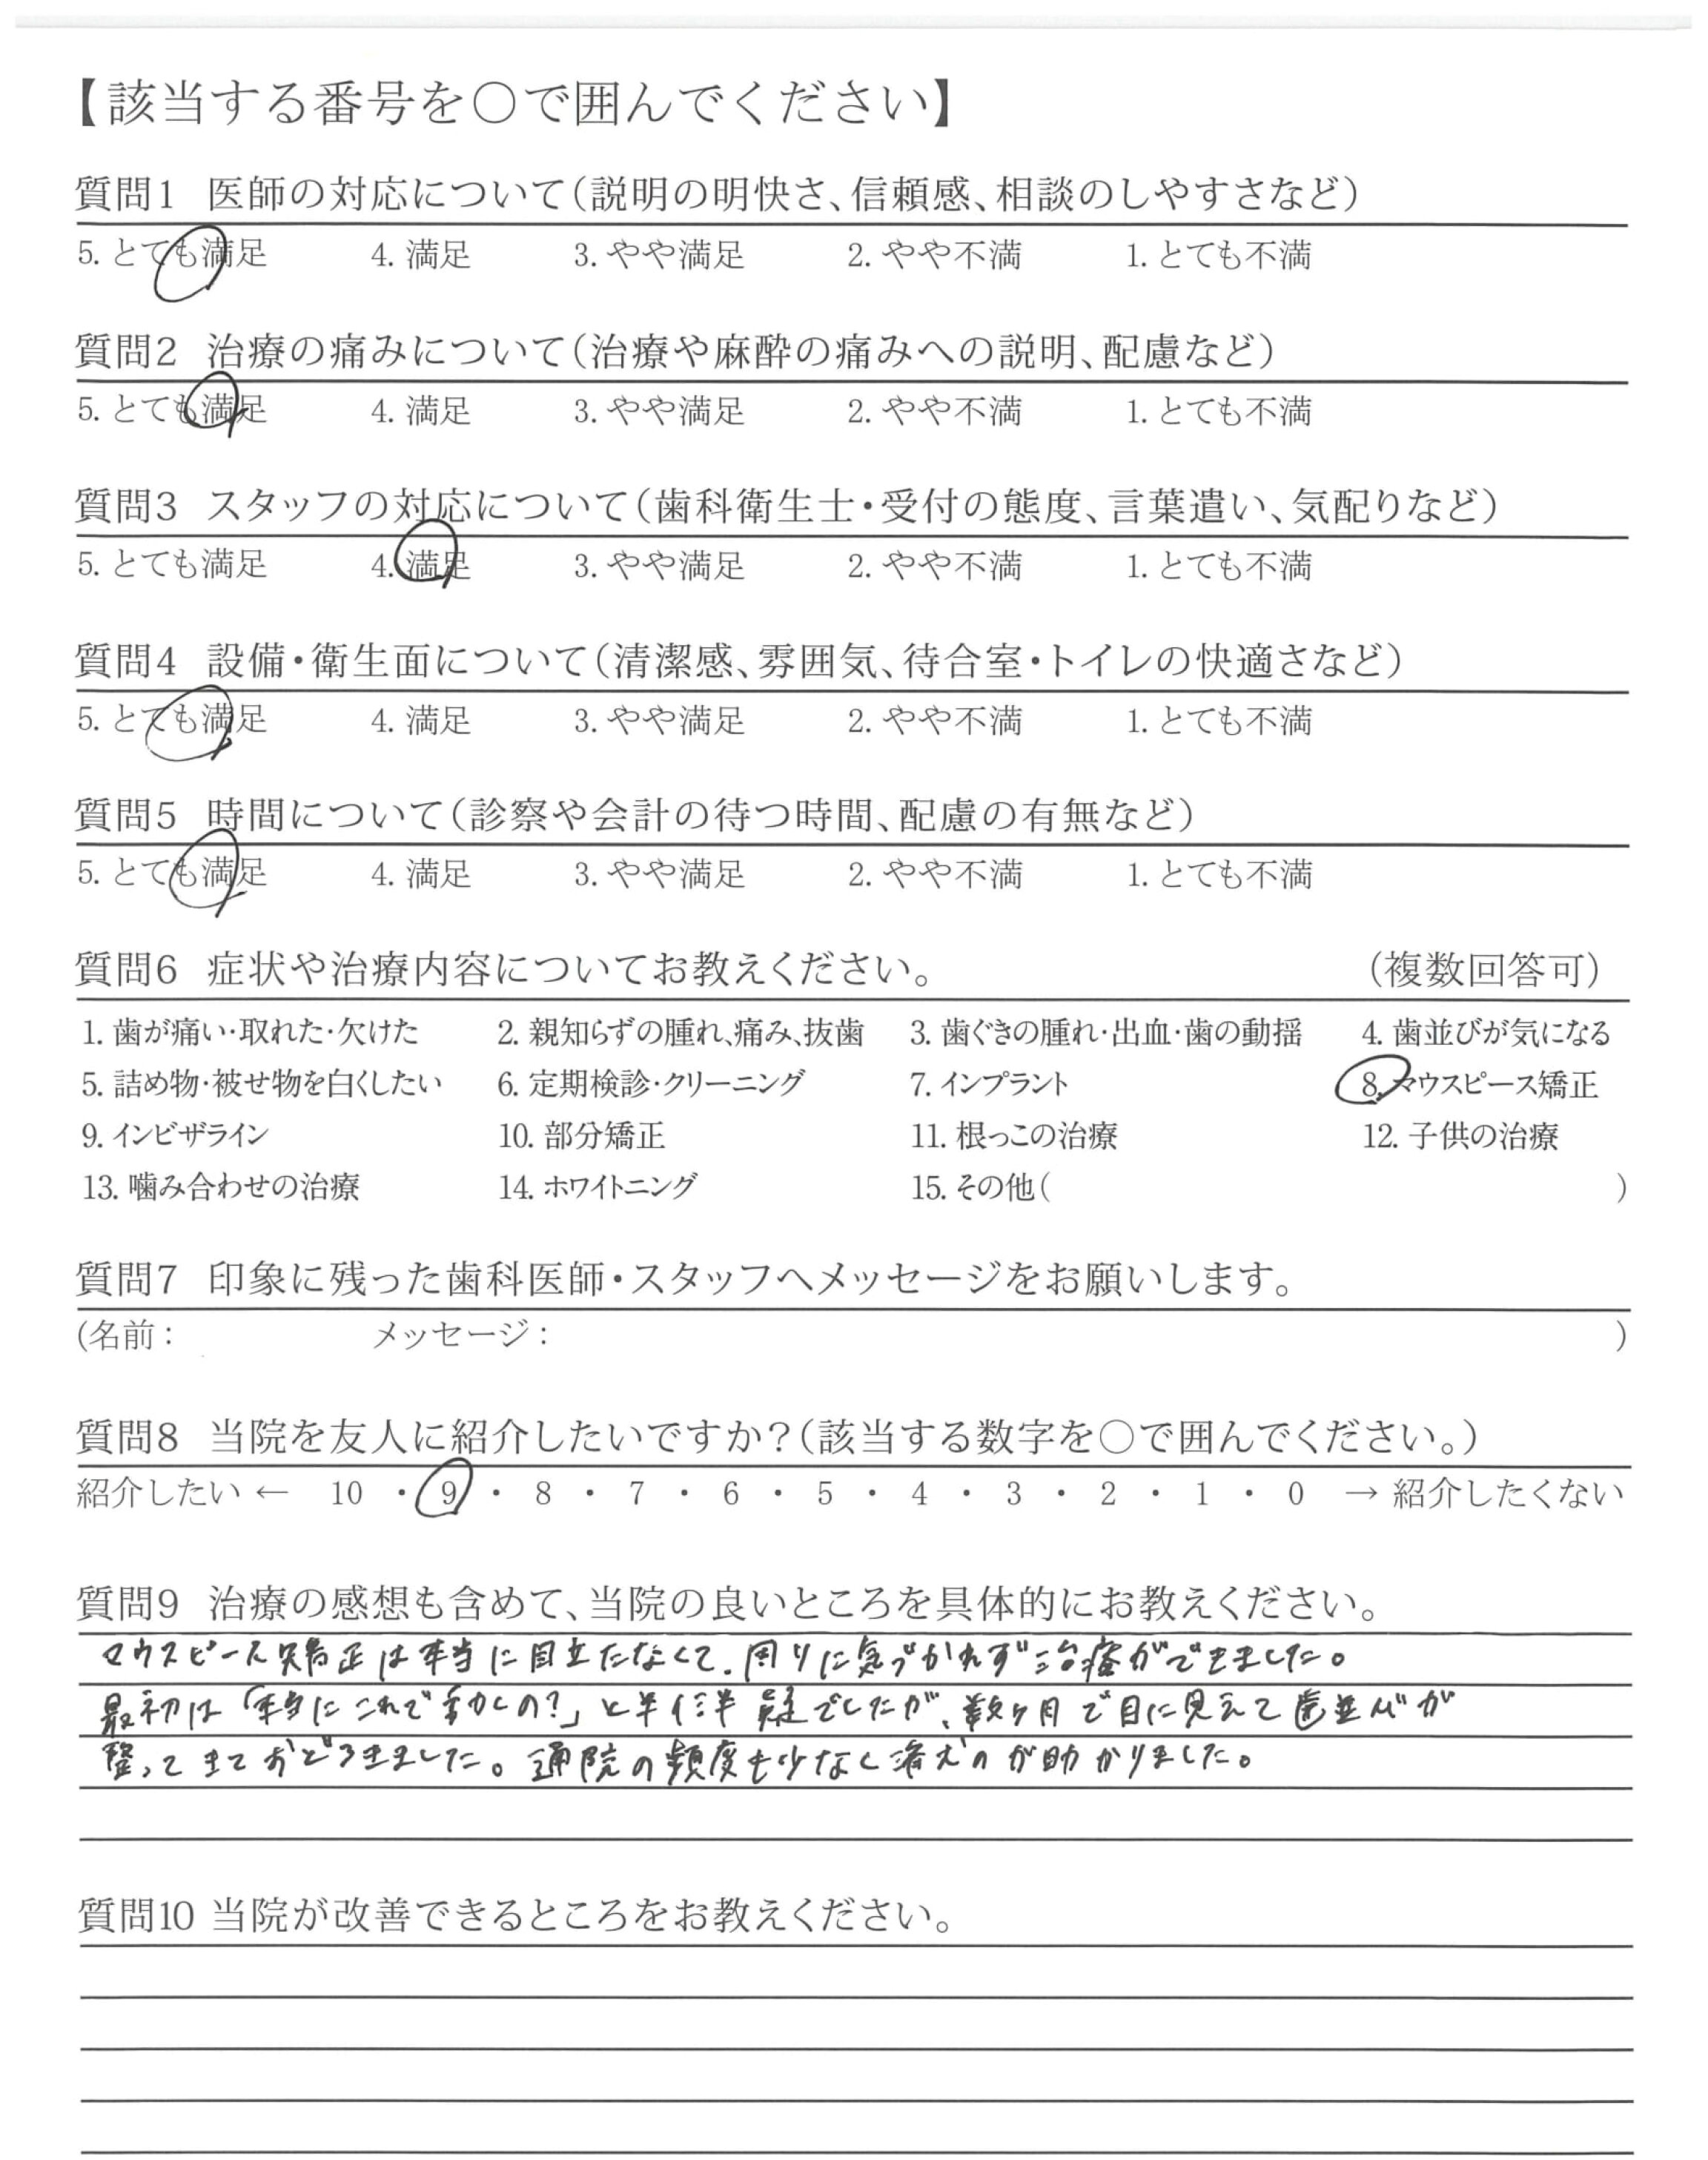 【該当する番号を〇で囲んでください】
質問1 医師の対応について(説明の明快さ、信頼感、相談のしやすさなど)
5. とても満足 4. 満足 3. やや満足 2. やや不満 1. とても不満
質問2 治療の痛みについて(治療や麻酔の痛みへの説明、配慮など)
5. とても満足 4. 満足 3. やや満足 2. やや不満 1. とても不満
質問3 スタッフの対応について(歯科衛生士・受付の態度、言葉遣い、気配りなど)
5. とても満足 4. 満足 3. やや満足 2. やや不満 1. とても不満
質問4 設備・衛生面について(清潔感、雰囲気、待合室・トイレの快適さなど)
5. とても満足 4. 満足 3. やや満足 2. やや不満 1. とても不満
質問5 時間について(診察や会計の待つ時間、配慮の有無など)
5. とても満足 4. 満足 3. やや満足 2. やや不満 1. とても不満
質問6 症状や治療内容についてお教えください。 (複数回答可)
1. 歯が痛い・取れた・欠けた 2. 親知らずの腫れ、痛み、抜歯 3. 歯ぐきの腫れ・出血・歯の動揺 4. 歯並びが気になる
5. 詰め物・被せ物を白くしたい 6. 定期検診・クリーニング 7. インプラント 8. マウスピース矯正
9. インビザライン 10. 部分矯正 11. 根っこの治療 12. 子供の治療
13. 噛み合わせの治療 14. ホワイトニング 15. その他( )
質問7 印象に残った歯科医師・スタッフへメッセージをお願いします。
(名前: メッセージ: )
質問8 当院を友人に紹介したいですか?(該当する数字を〇で囲んでください。)
紹介したい ← 10 ・ 9 ・ 8 ・ 7 ・ 6 ・ 5 ・ 4 ・ 3 ・ 2 ・ 1 ・ 0 → 紹介したくない
質問9 治療の感想も含めて、当院の良いところを具体的にお教えください。
マウスピース矯正は本当に目立たなくて、周りに気づかれず治療ができました。
最初は「本当にこれで動くの?」と半信半疑でしたが、数ヶ月で目に見えて歯並びが
整ってきておどろきました。通院の頻度も少なく済むのが助かりました。
質問10 当院が改善できるところをお教えください。